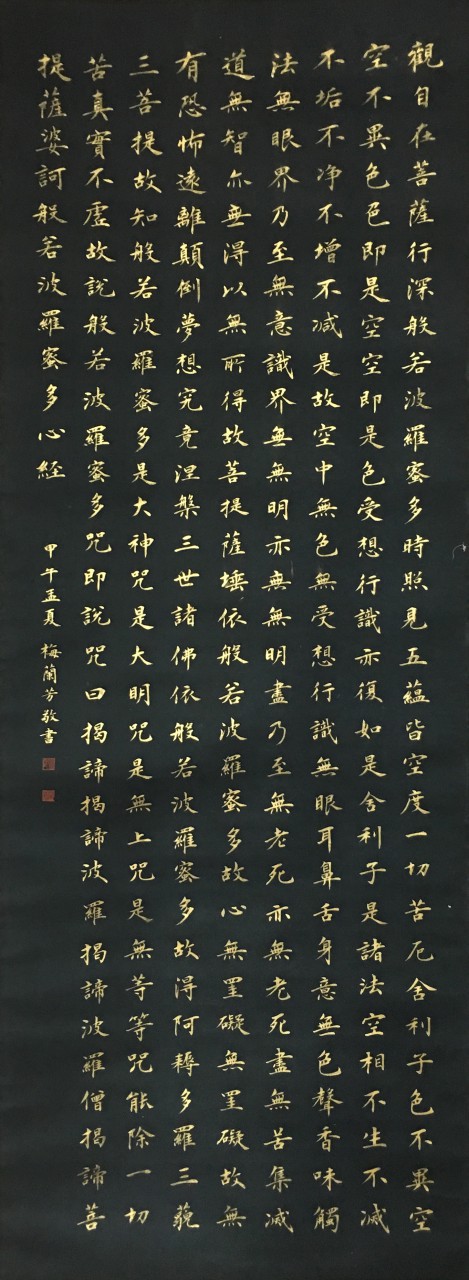 觀自在菩薩行深般若波羅蜜多時照見五蘊皆空度一切苦厄舍利子色不異空
空不異色色即是空空即是色受想行識亦復如是舍利子是諸法空相不生不滅
不垢不净不增不减是故空中無色無受想行識無眼耳鼻舌身意無色聲香味觸
法無眼界乃至無意識界無無明亦無無明盡乃至無老死亦無老死盡無苦集滅
道無智亦無得以無所得故菩提薩埵依般若波羅蜜多故心無罣礙無罣礙故無
有恐怖遠離顛倒夢想究竟涅槃三世諸佛依般若波羅蜜多故得阿耨多羅三藐
三菩提故知般若波羅蜜多是大神咒是大明咒是無上咒是無等等咒能除一切
苦真實不虛故說般若波羅蜜多咒即說咒曰揭諦揭諦波羅揭諦波羅僧揭諦菩
提薩婆訶般若波羅蜜多心經
甲午孟夏 梅蘭芳敬書